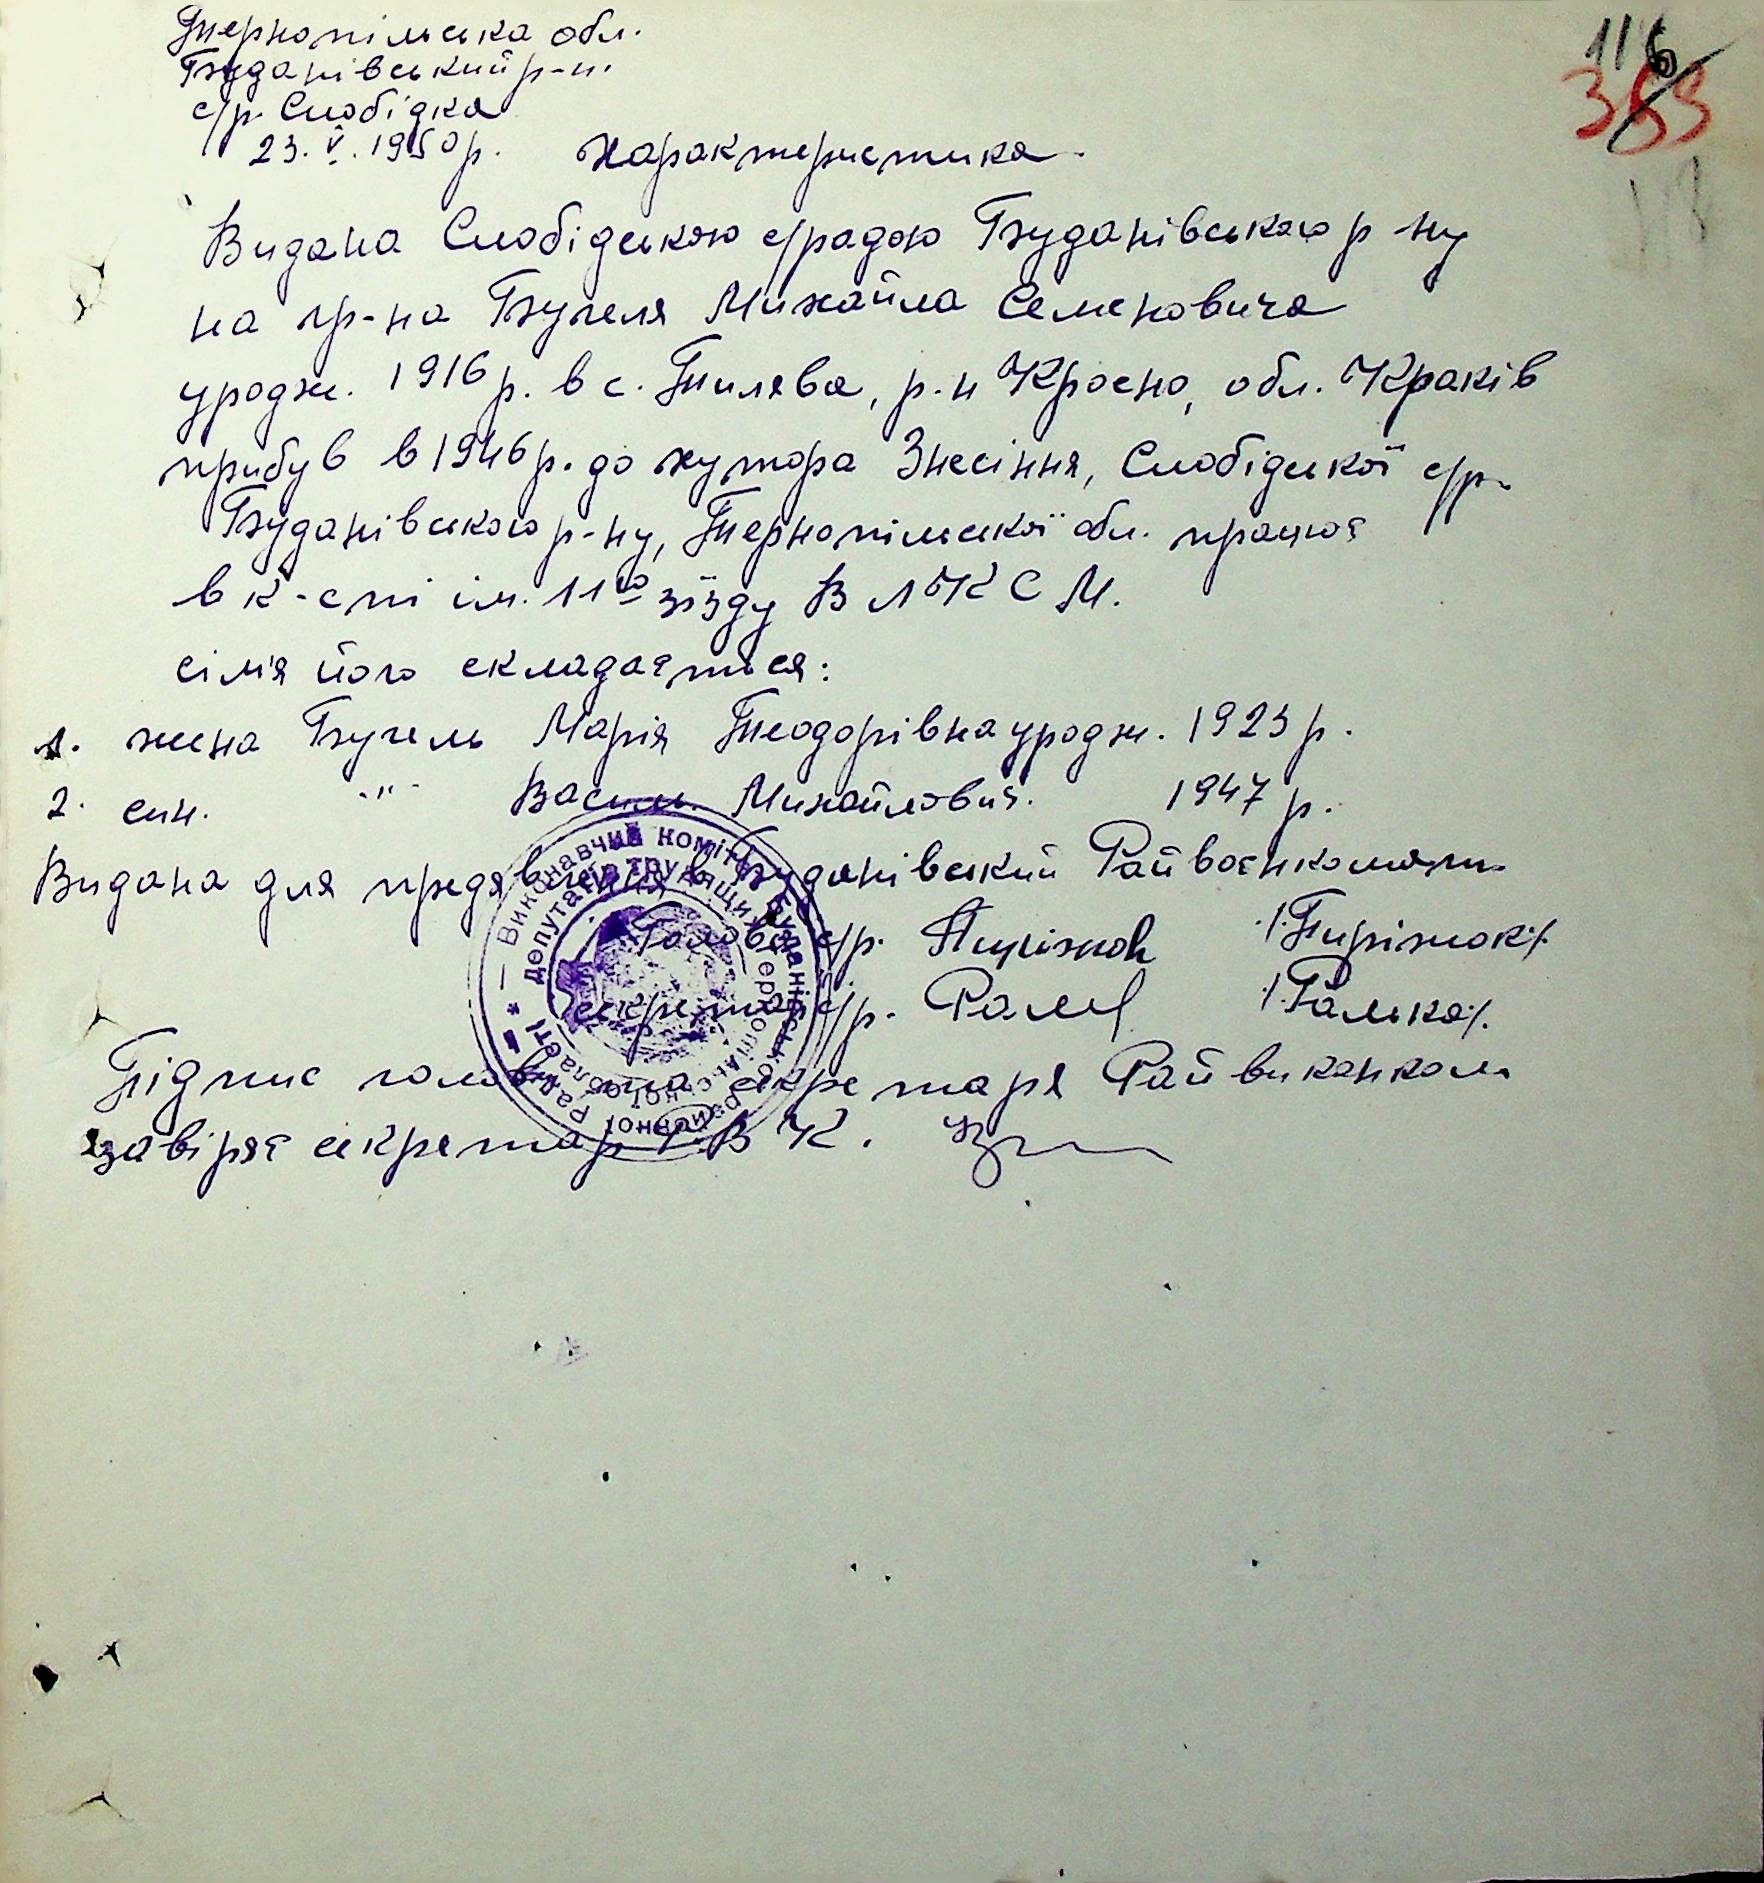 116
383
118
Тернопільська обл.
Буданівський р-н.
с/р. Слобідка
23. V. 1950 р. характеристика.
Видана Слобідською с/радою Буданівського р-ну
на гр-на Бугеля Михайла Семеновича
уродж. 1916 р. в с. Тилява, р-н Кросно, обл. Краків
прибув в 1946 р. до хутора Знесіння, Слобідської с/р.
Буданівського р-ну, Тернопільської обл. працює
в к-спі ім. 11го зїзду ВЛКСМ.
сімя його складається:
1. жена Бугель Марія Теодорівна уродж. 1923 р.
2. син. -"- Василь Михайлович. 1947 р.
Видана для предявлення в Буданівський Райвоєнкомат
Голова с/р. Пиріжок /Пиріжок/.
секретар с/р. Раль /Ралька/.
Підпис голови та секретаря Райвиконком
завіряє секретар Р.В.К.
Виконавчий комітет Буданівської районної Ради
депутатів трудящих Тернопільської області